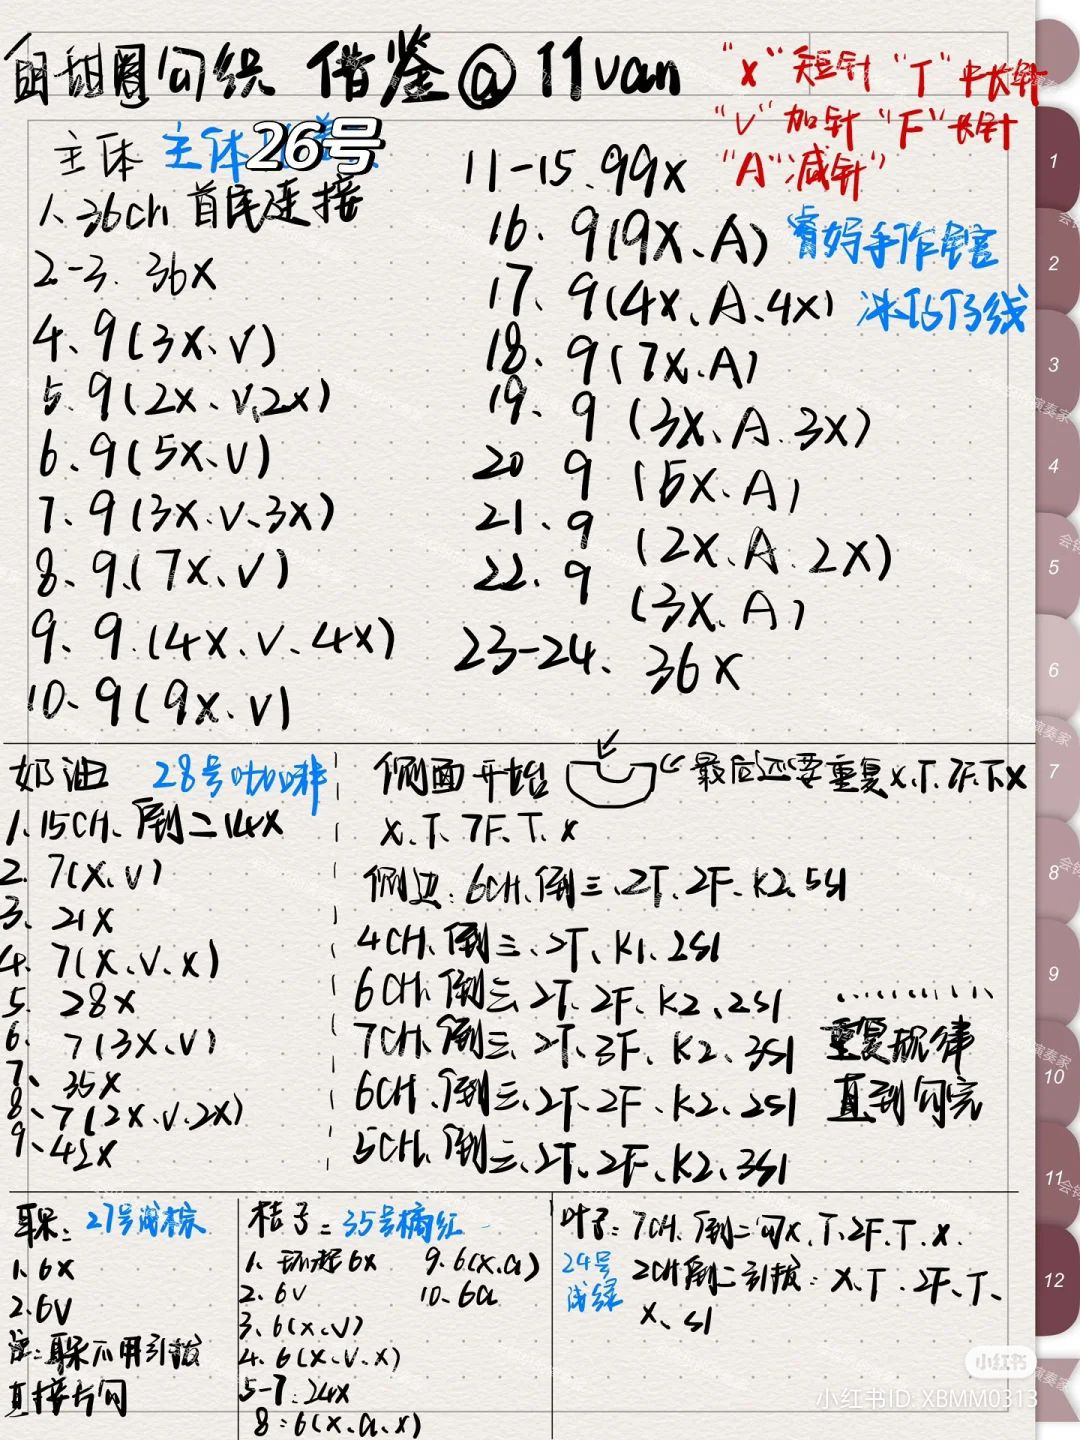 甜甜圈勾织 借鉴@11van
"x"短针 "T"中长针
"V"加针 "F"长针
"A"减针"
主体 主体26号
1、36ch 首尾连接
2-3. 36x
4、9(3x、v)
5.9(2x、v,2x)
6、9(5x、v)
7、9(3x.v.3x)
8、9.(7x、v)
9、9.(4x.v.4x)
10、9(9x.v)
11-15.99x
16、9(9x、A)
17、9(4x、A.4x)
18、9(7x.A)
19、9(3x、A.3x)
20 9(5x.A)
21、9(2x.A.2x)
22.9(3x.A)
23-24、36x
手作
冰 线
奶油 28号咖啡
1.15CH、倒二14x
2. 7(x、v)
3、21x
4、7(x、v、x)
5. 28x
6、7(3x、v)
7、35x
8、7(2x.v.2x)
9、42x
侧面开始 "最后还要重复x.T.7F.T.x
x.T.7F.T.x
侧边:6CH、倒三、2T、2F、K2、5sl
4CH、倒三、2T、K1、2sl
6CH、倒三、2T、2F、K2、2sl
7CH、倒三、2T、3F、K2、3sl
6CH、倒三、2T、2F、K2、2sl
5CH、倒三、2T、2F、K2、3sl
............
重复规律
直到勾完
耳朵: 27号浅棕
1.6x
2.6v
注:耳朵不用引拔
直接片勾
桔子:35号橘红
1、环起6x
2. 6v
3、6(x、v)
4. 6(x、v、x)
5-7:24x
8:6(x、a、x)
9.6(x.a)
10、6a
叶子:7CH、倒二勾x、T、2F、T、x.
24号
浅绿
2CH倒二引拔:x、T.2F、T、
x、sl
1
2
3
4
5
6
7
8
9
10
11
12
小红书
小红书ID: XBMM0313